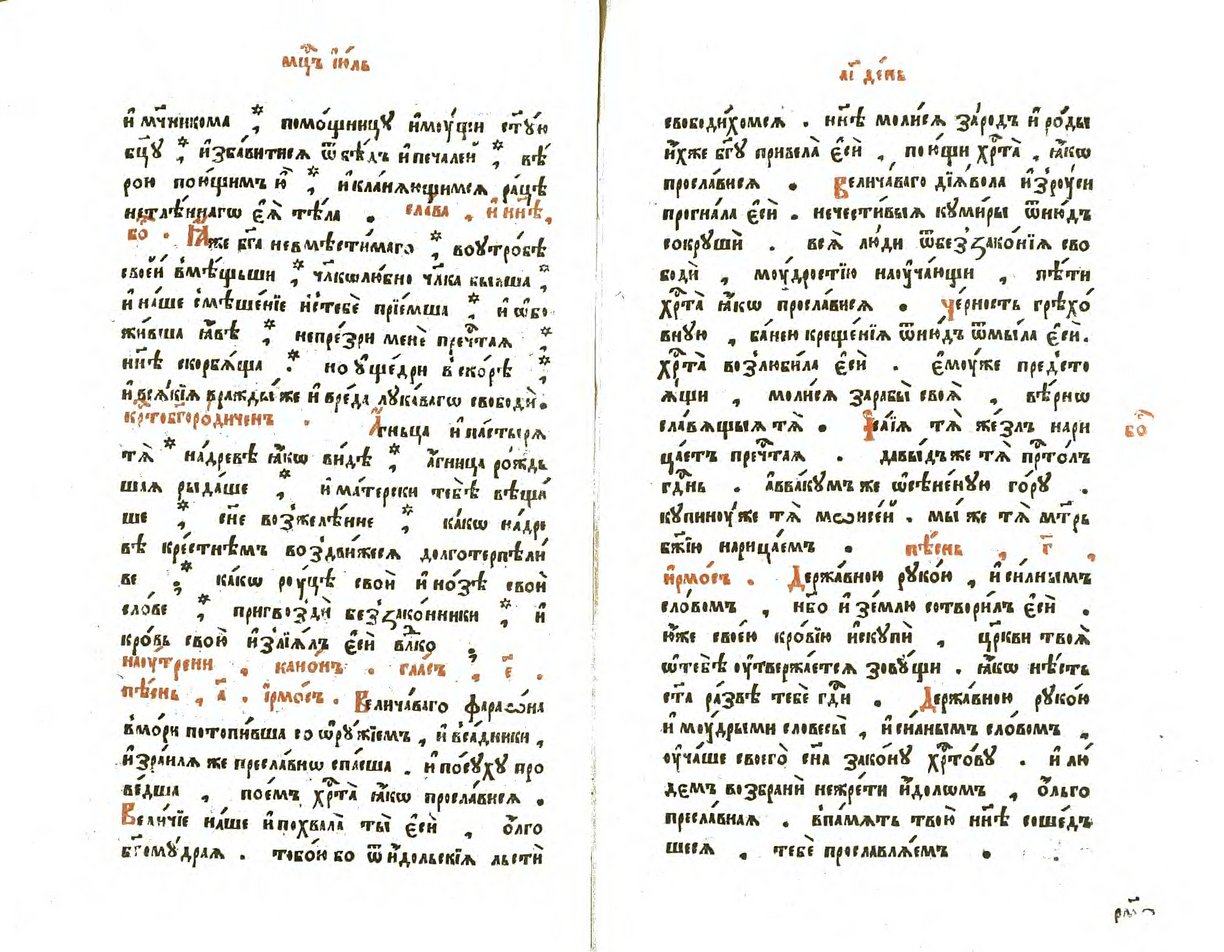 мц҃ъ ію́ль
и҆ мч҃никома * , помо́щницꙋ и҆мꙋ́щи ст҃ꙋ́ю
бц҃ꙋ * , и҆збавитисѧ ѿ бѣ́дъ и҆ печа́лей * , вѣ́
рою пою́щимъ ю҆̀ * , и҆ кла́нѧющимсѧ ра́цѣ
нетлѣ́ннагѡ є҆ѧ̀ тѣ́ла . сла́ва , и҆ ны́нѣ ,
бо҃ . Ꙗ҆́же бг҃а невмѣсти́маго * , воутро́бѣ
свое́й вмѣ́щьши * , чл҃колю́бно чл҃ка бы́вша * ,
и҆ на́ше смѣше́нїе и҆стебѐ прїе́мша * , и҆ ѡ҆бо
жи́вша ꙗ҆́вѣ * , непре́зри менѐ пречⷭ҇таѧ *
нн҃ѣ скорбѧ́ща * . но ᲂу҆ще́дри вско́рѣ * ,
и҆ всѧ́кїѧ вражды́ же и҆ вре́да лꙋка́вагѡ свободѝ .
крⷭ҇тобг҃оро́диченъ . А҆́гньца и҆ па́стырѧ
тѧ̀ * на́древѣ ꙗ҆́кѡ ви́дѣ * , а҆́гница ро́ждь
шаѧ рыда́ше * , и҆ ма́терски тебѣ̀ вѣща́
ше * , сн҃е возжелѣ́нне * , ка́кѡ на́дре
вѣ кре́стнѣмъ воздви́жесѧ долготерпѣли́
ве * , ка́кѡ рꙋ́цѣ своѝ и҆ но́зѣ своѝ
сло́ве * , пригвоздѝ беззако́нники * , и҆
кро́вь свою̀ и҆злїѧ́лъ є҆сѝ влⷣко ,
наᲂу́трени , кано́нъ . гла́съ , є҃ .
пѣ́снь , а҃ . і҆рмо́съ . Велича́ваго фараѡ́на
вмо́ри потопи́вша со ѻ҆рꙋ́жїемъ , и҆ вса́дники ,
и҆зра́илѧ же пресла́внѡ спа́сша . и҆ посꙋ́хꙋ про
ве́дша , пое́мъ хрⷭ҇та̀ ꙗ҆́кѡ просла́висѧ .
Вели́чїе на́ше и҆ похвала̀ ты̀ є҆сѝ , ѻ҆́лго
бг҃омꙋ́драѧ . тобо́ю бо ѿ и҆́дольскїѧ льстѝ
а҃і де́нь
свободи́хомсѧ . нн҃ѣ моли́сѧ за́родъ и҆ ро́ды
и҆́хже бг҃ꙋ привела̀ є҆сѝ , пою́щи хрⷭ҇та̀ , ꙗ҆́кѡ
просла́висѧ . Велича́ваго дїѧ́вола и҆з̾рꙋ́си
прогна́ла є҆сѝ . нечести́выѧ кꙋми́ры ѿню́дъ
сокрꙋшѝ . всѧ̀ лю́ди ѿбеззако́нїѧ сво
бодѝ , мꙋ́дростїю наᲂуча́ющи , пѣ́ти
хрⷭ҇та̀ ꙗ҆́кѡ просла́висѧ . Че́рность грѣхо́
внꙋю , ба́нею креще́нїѧ ѿню́дъ ѿмы́ла є҆сѝ .
хрⷭ҇та̀ возлюби́ла є҆сѝ . є҆мꙋ́же предсто
ѧ́щи , моли́сѧ зарабы̀ своѧ̀ , вѣ́рнѡ
сла́вѧщыѧ тѧ̀ . І҆са́їѧ тѧ̀ же́злъ нари
ца́етъ пречⷭ҇таѧ . давы́дъ же тѧ̀ прⷭ҇то́лъ
гдⷭ҇нь . а҆ввакꙋ́мъ же ѡ҆сѣне́нꙋю го́рꙋ .
кꙋпинꙋ́ же тѧ̀ мѡисе́й . мы́ же тѧ̀ мт҃рь
бж҃їю нарица́емъ . пѣ́снь , г҃ ,
бо҃
і҆рмо́съ . Держа́вною рꙋко́ю , и҆ си́лнымъ
сло́вомъ , нб҃о и҆ зе́млю сотвори́лъ є҆сѝ .
ю҆́же свое́ю кро́вїю и҆скꙋпѝ , цр҃кви твоѧ̀
ѡ҆тебѣ̀ ᲂу҆твержа́етсѧ зовꙋ́щи . ꙗ҆́кѡ нѣ́сть
ст҃а ра́звѣ тебѐ гдⷭ҇и . Держа́вною рꙋко́ю
и҆ мꙋ́дрыми словесы̀ , и҆ си́лнымъ сло́вомъ ,
ᲂу҆ча́ше своего̀ сн҃а зако́нꙋ хрⷭ҇то́вꙋ . и҆ лю́
демъ возбранѝ нежре́ти и҆́долѡмъ , ѻ҆́льго
пресла́внаѧ . впа́мѧть твою̀ нн҃ѣ соше́дъ
шесѧ , тебѐ прославлѧ́емъ .